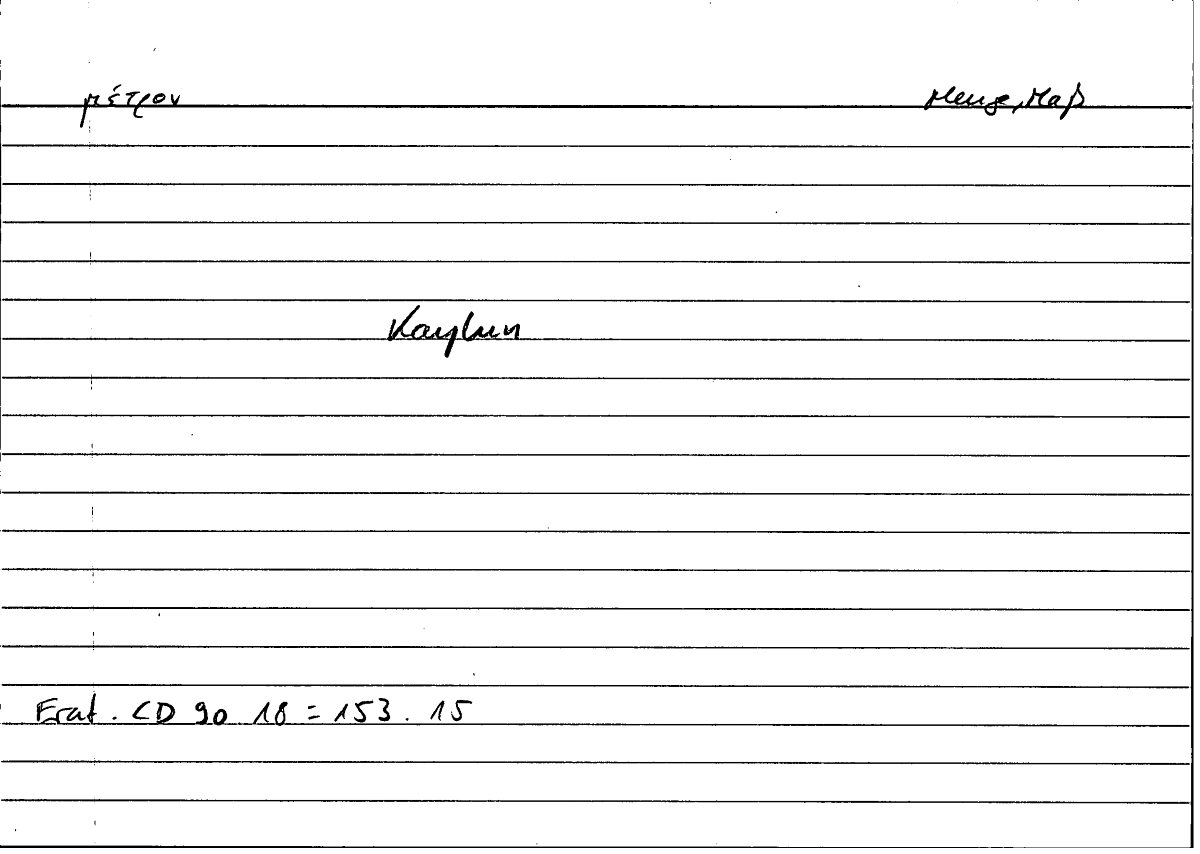 μέτρον Menge, Maß
Erat. CD 90 18 = 153. 15